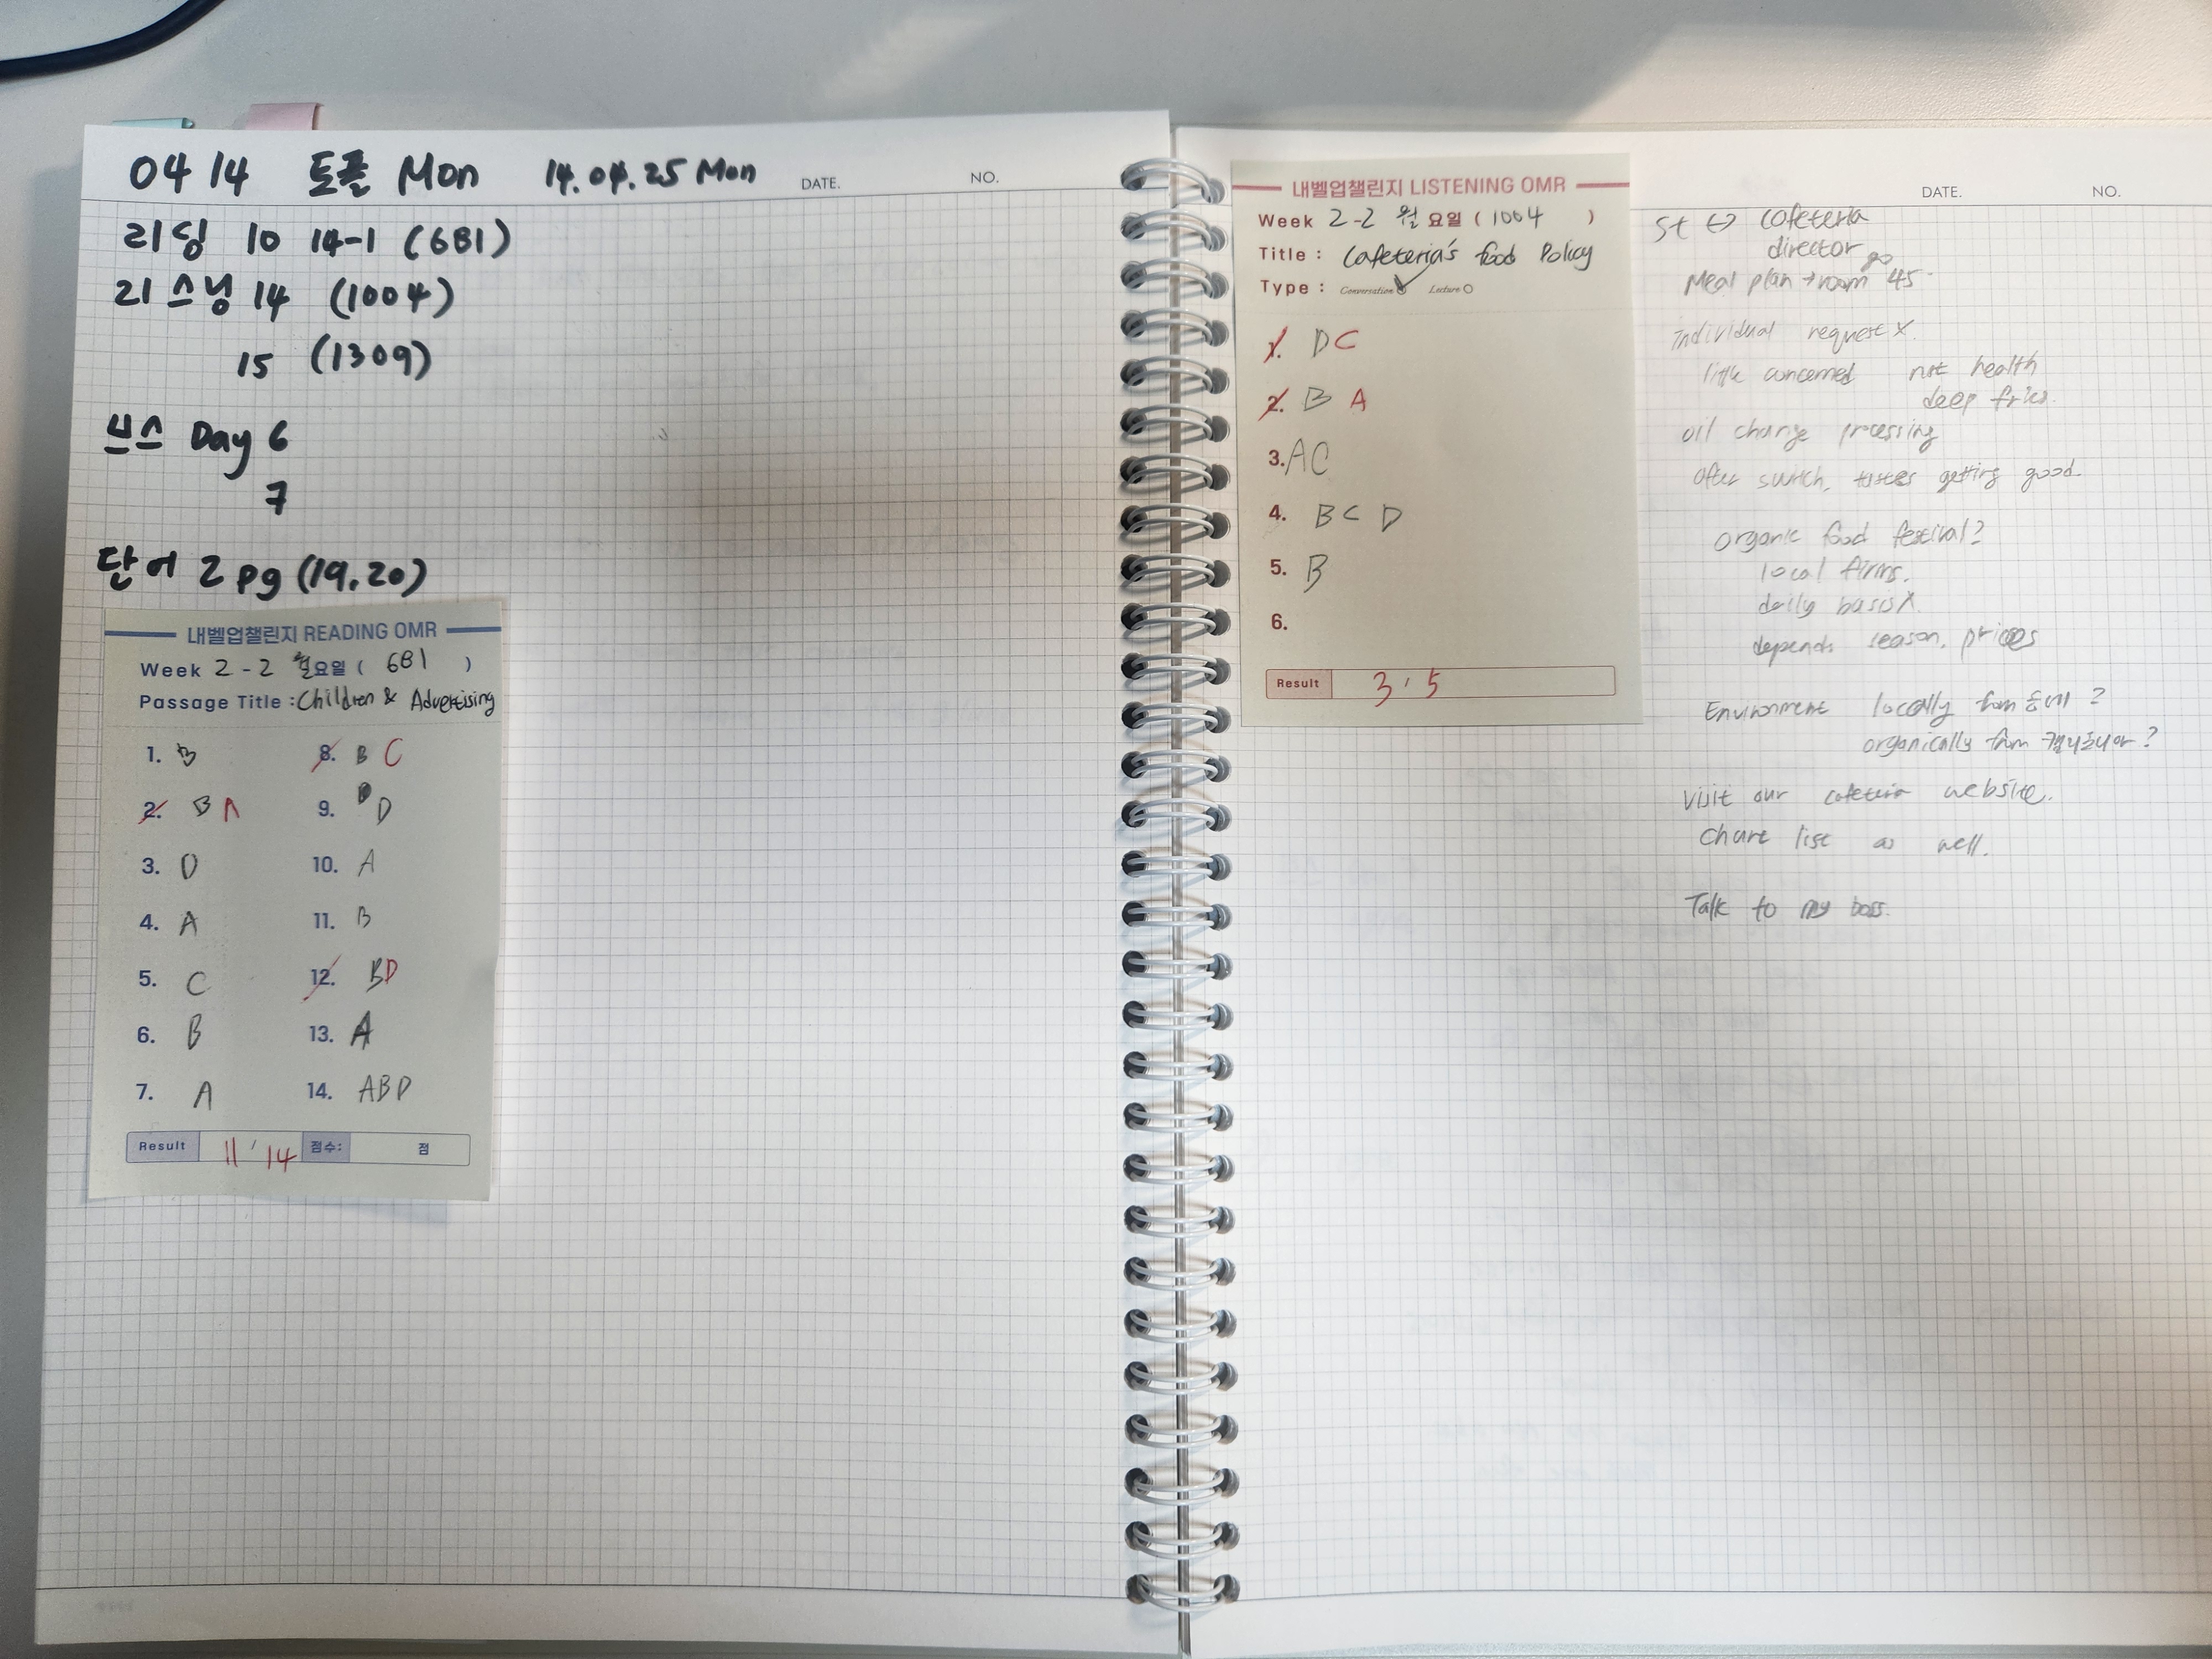 04 14 토플 Mon 14.04.25 Mon
DATE.
NO.
리딩 10 14-1 (681)
리스닝 14 (1004)
15 (1309)
쁘스 Day 6
7
단어 2pg (19, 20)
내벨업챌린지 READING OMR
Week 2-2 월요일 ( 681 )
Passage Title : Children & Advertising
1. B
2. B A
3. D
4. A
5. C
6. B
7. A
8. B C
9. D
10. A
11. B
12. B D
13. A
14. ABD
Result 11 / 14 점수: 점
내벨업챌린지 LISTENING OMR
Week 2-2 월요일 ( 1004 )
Title : Cafeteria's food Policy
Type : Conversation Lecture
1. D C
2. B A
3. AC
4. B C D
5. B
6.
Result 3 / 5
DATE.
NO.
St ↔ cafeteria
director
go
Meal plan → room 45
Individual request X.
little concerned not health
deep fries.
oil change processing
After switch, tastes getting good.
organic food festival?
local firms.
daily basis X.
depends season, prices
Environment locally from 동네 ?
organically from 캘리포니아 ?
Visit our cafeteria website.
Chart list as well.
Talk to my boss.